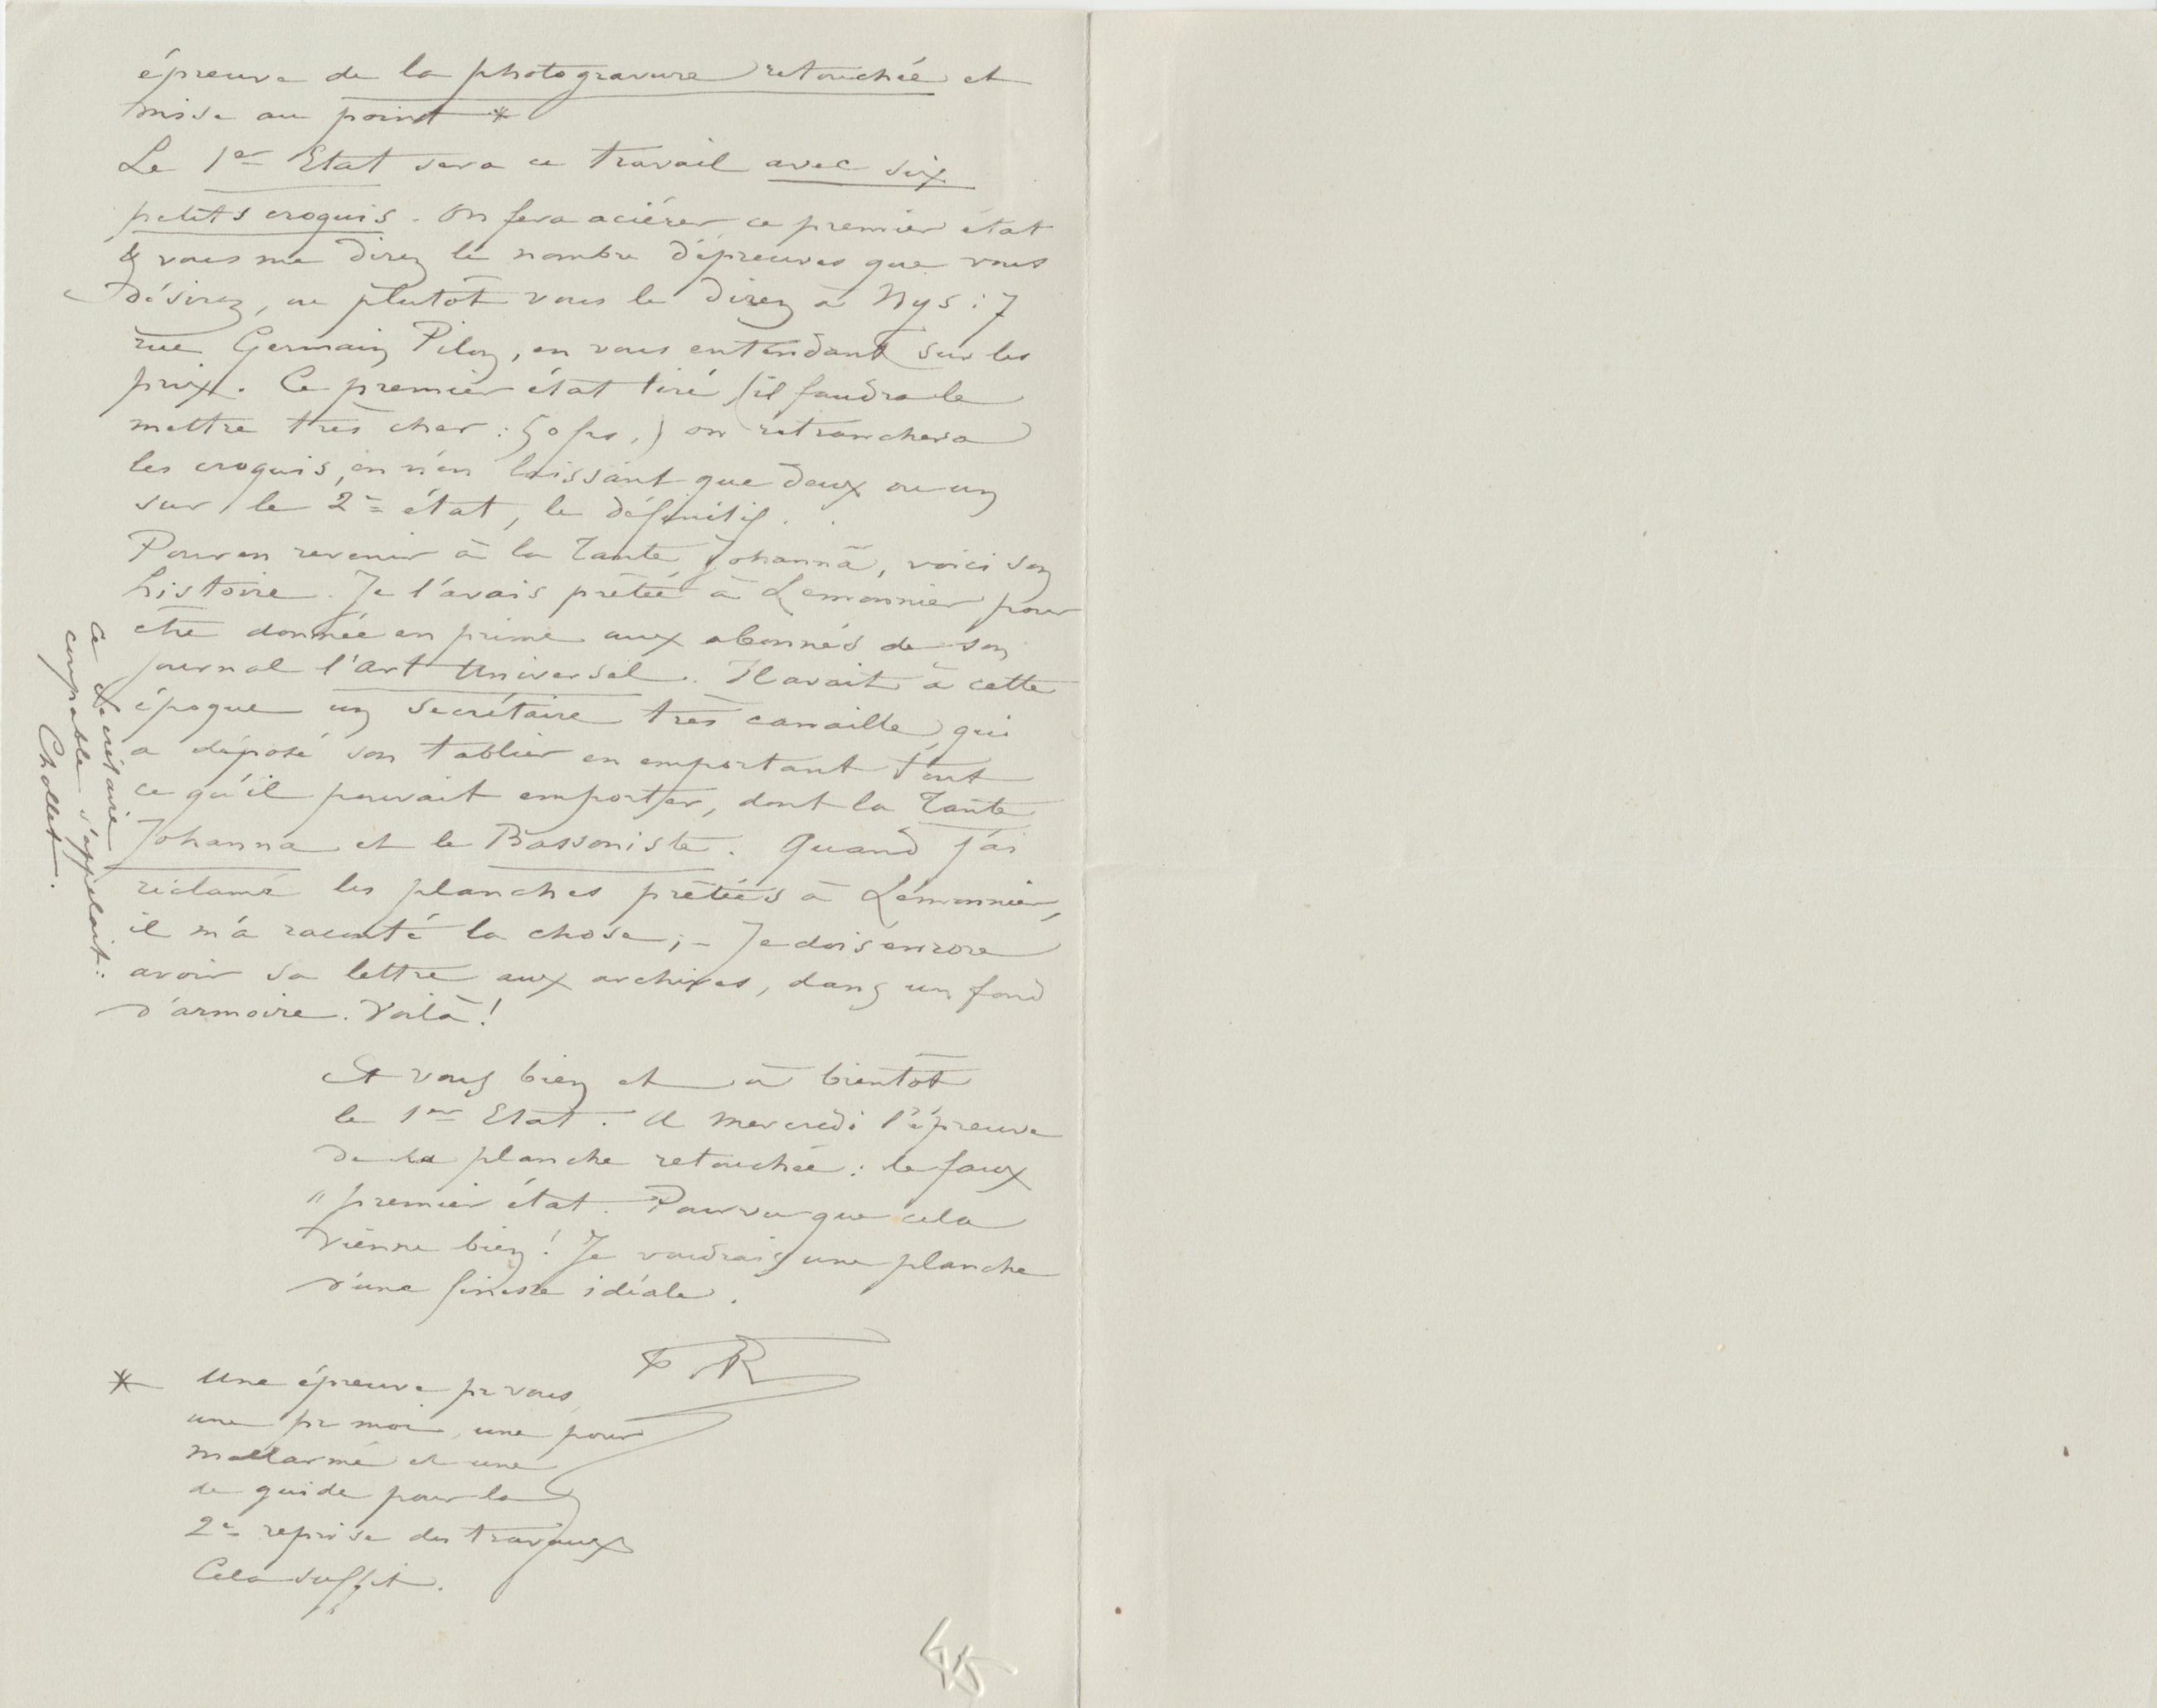 épreuve de la photogravure retouchée et
mise au point *
Le 1er Etat sera ce travail avec six
petits croquis. On fera aciérer ce premier état
& vous me direz le nombre d'épreuves que vous
désirez, ou plutôt vous le direz à Nys : 7
rue Germain Pilon, en vous entendant sur les
prix. Ce premier état tiré (il faudra le
mettre très cher : 50 frs,) on retranchera
les croquis, en n'en laissant que deux ou un
sur le 2e état, le définitif.
Pour en revenir à la Tante Johanna, voici son
histoire. Je l'avais prêtée à Lemonnier pour
être donnée en prime aux abonnés de son
journal l'Art Universel. Il avait à cette
époque un secrétaire très canaille, qui
a déposé son tablier en emportant tout
ce qu'il pouvait emporter, dont la Tante
Johanna et le Bassoniste. Quand j'ai
réclamé les planches prêtées à Lemonnier,
il m'a raconté la chose ; – Je dois encore
avoir sa lettre aux archives, dans un fond
d'armoire. Voilà !
Ce secrétaire
coupable s'appelait :
Chollet.
Et vous bien et à bientôt
le 1er Etat. A mercredi l'épreuve
de la planche retouchée : le faux
" premier état. Pourvu que cela
vienne bien ! Je voudrais une planche
d'une finesse idéale.
FR
* Une épreuve pr vous,
une pr moi, une pour
Mallarmé et une
de guide pour la
2e reprise des travaux
Cela suffit.